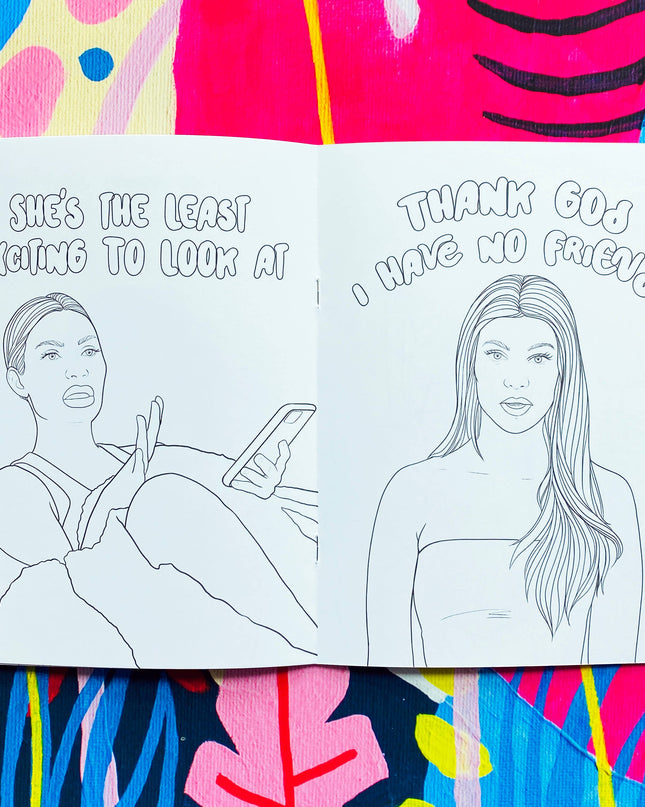 SHE'S THE LEAST
XCITING TO LOOK AT
THANK GOd
I HAVe NO FRIEND